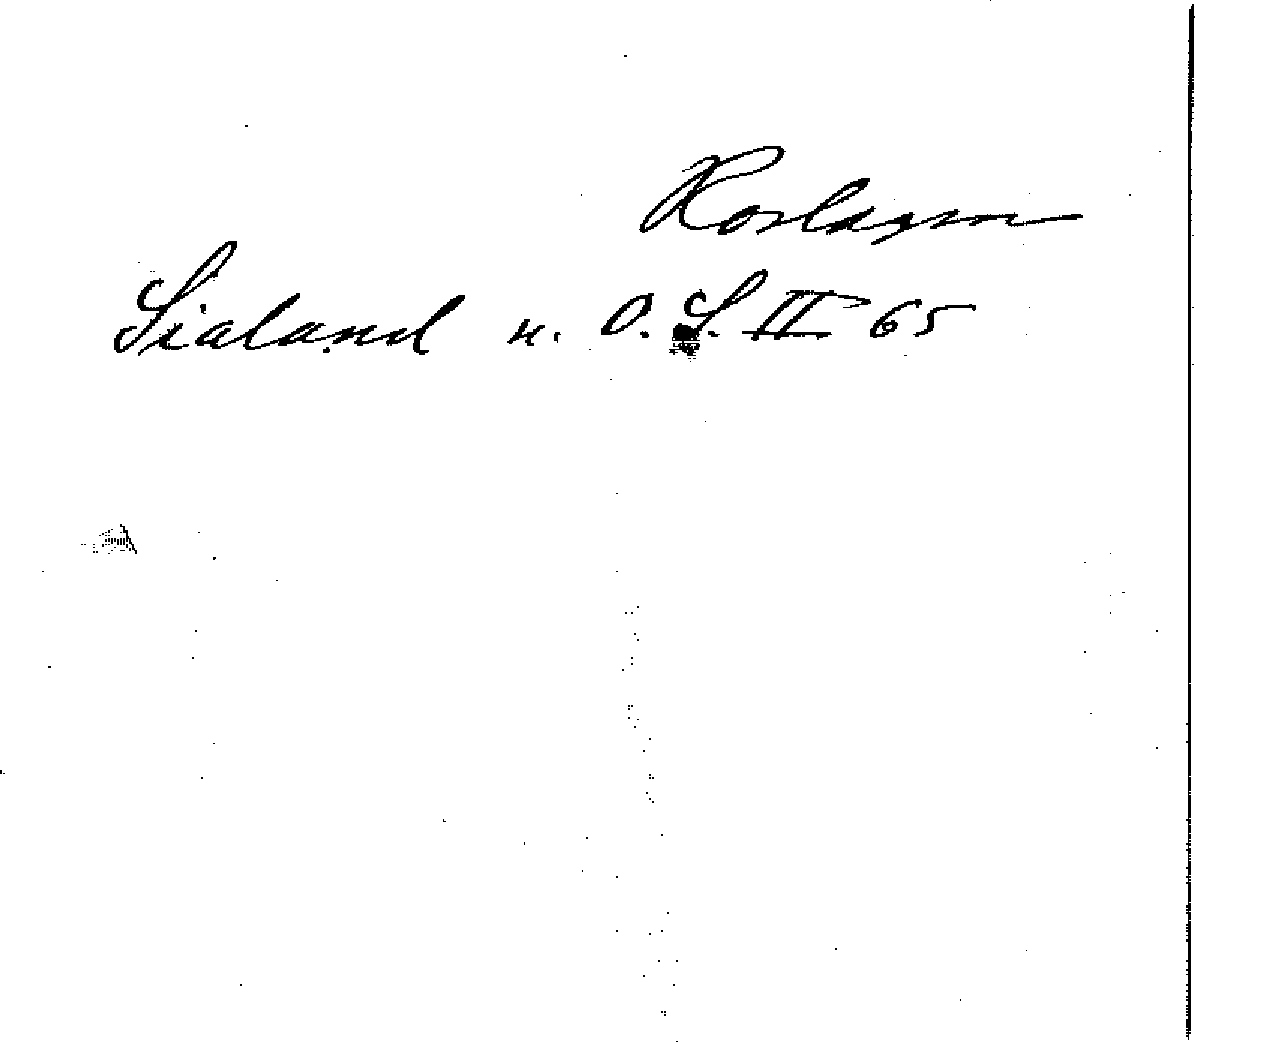 Roslagen
Sialand n. O. S. II 65